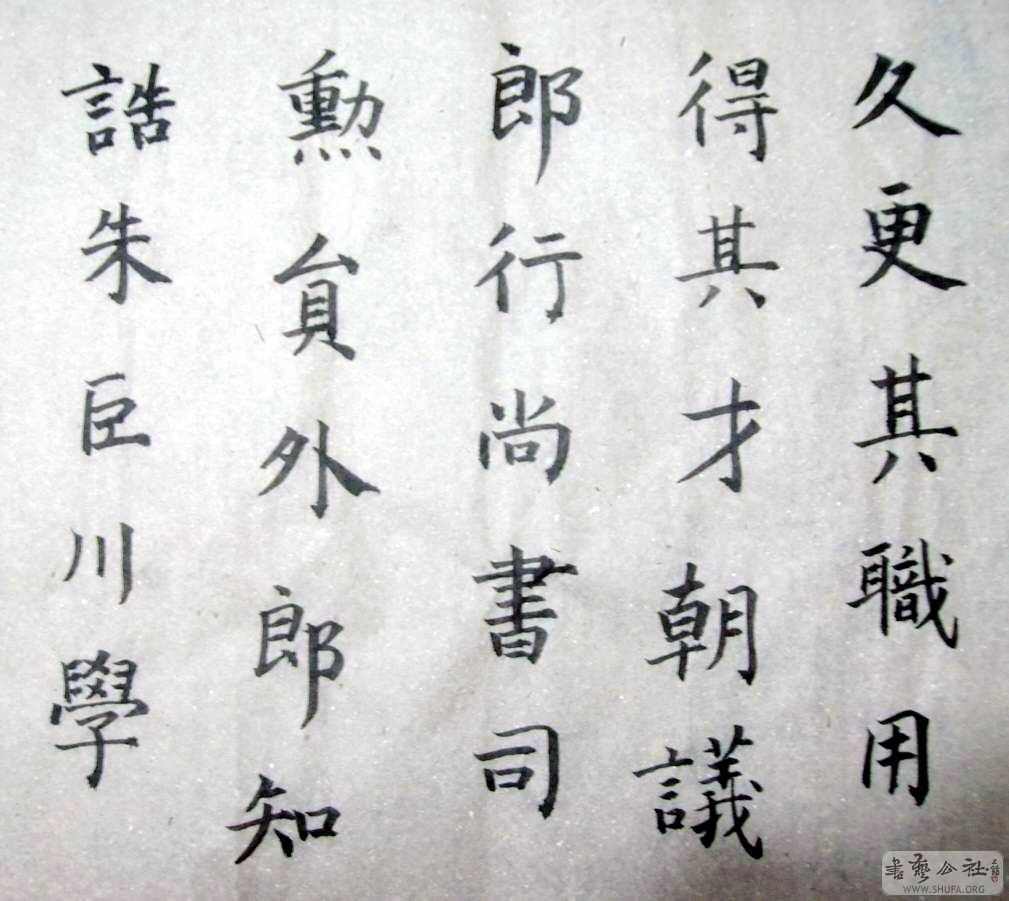 久更其職用
得其才朝議
郎行尚書司
勳貟外郎知
誥朱巨川學
書藝公社
WWW.SHUFA.ORG